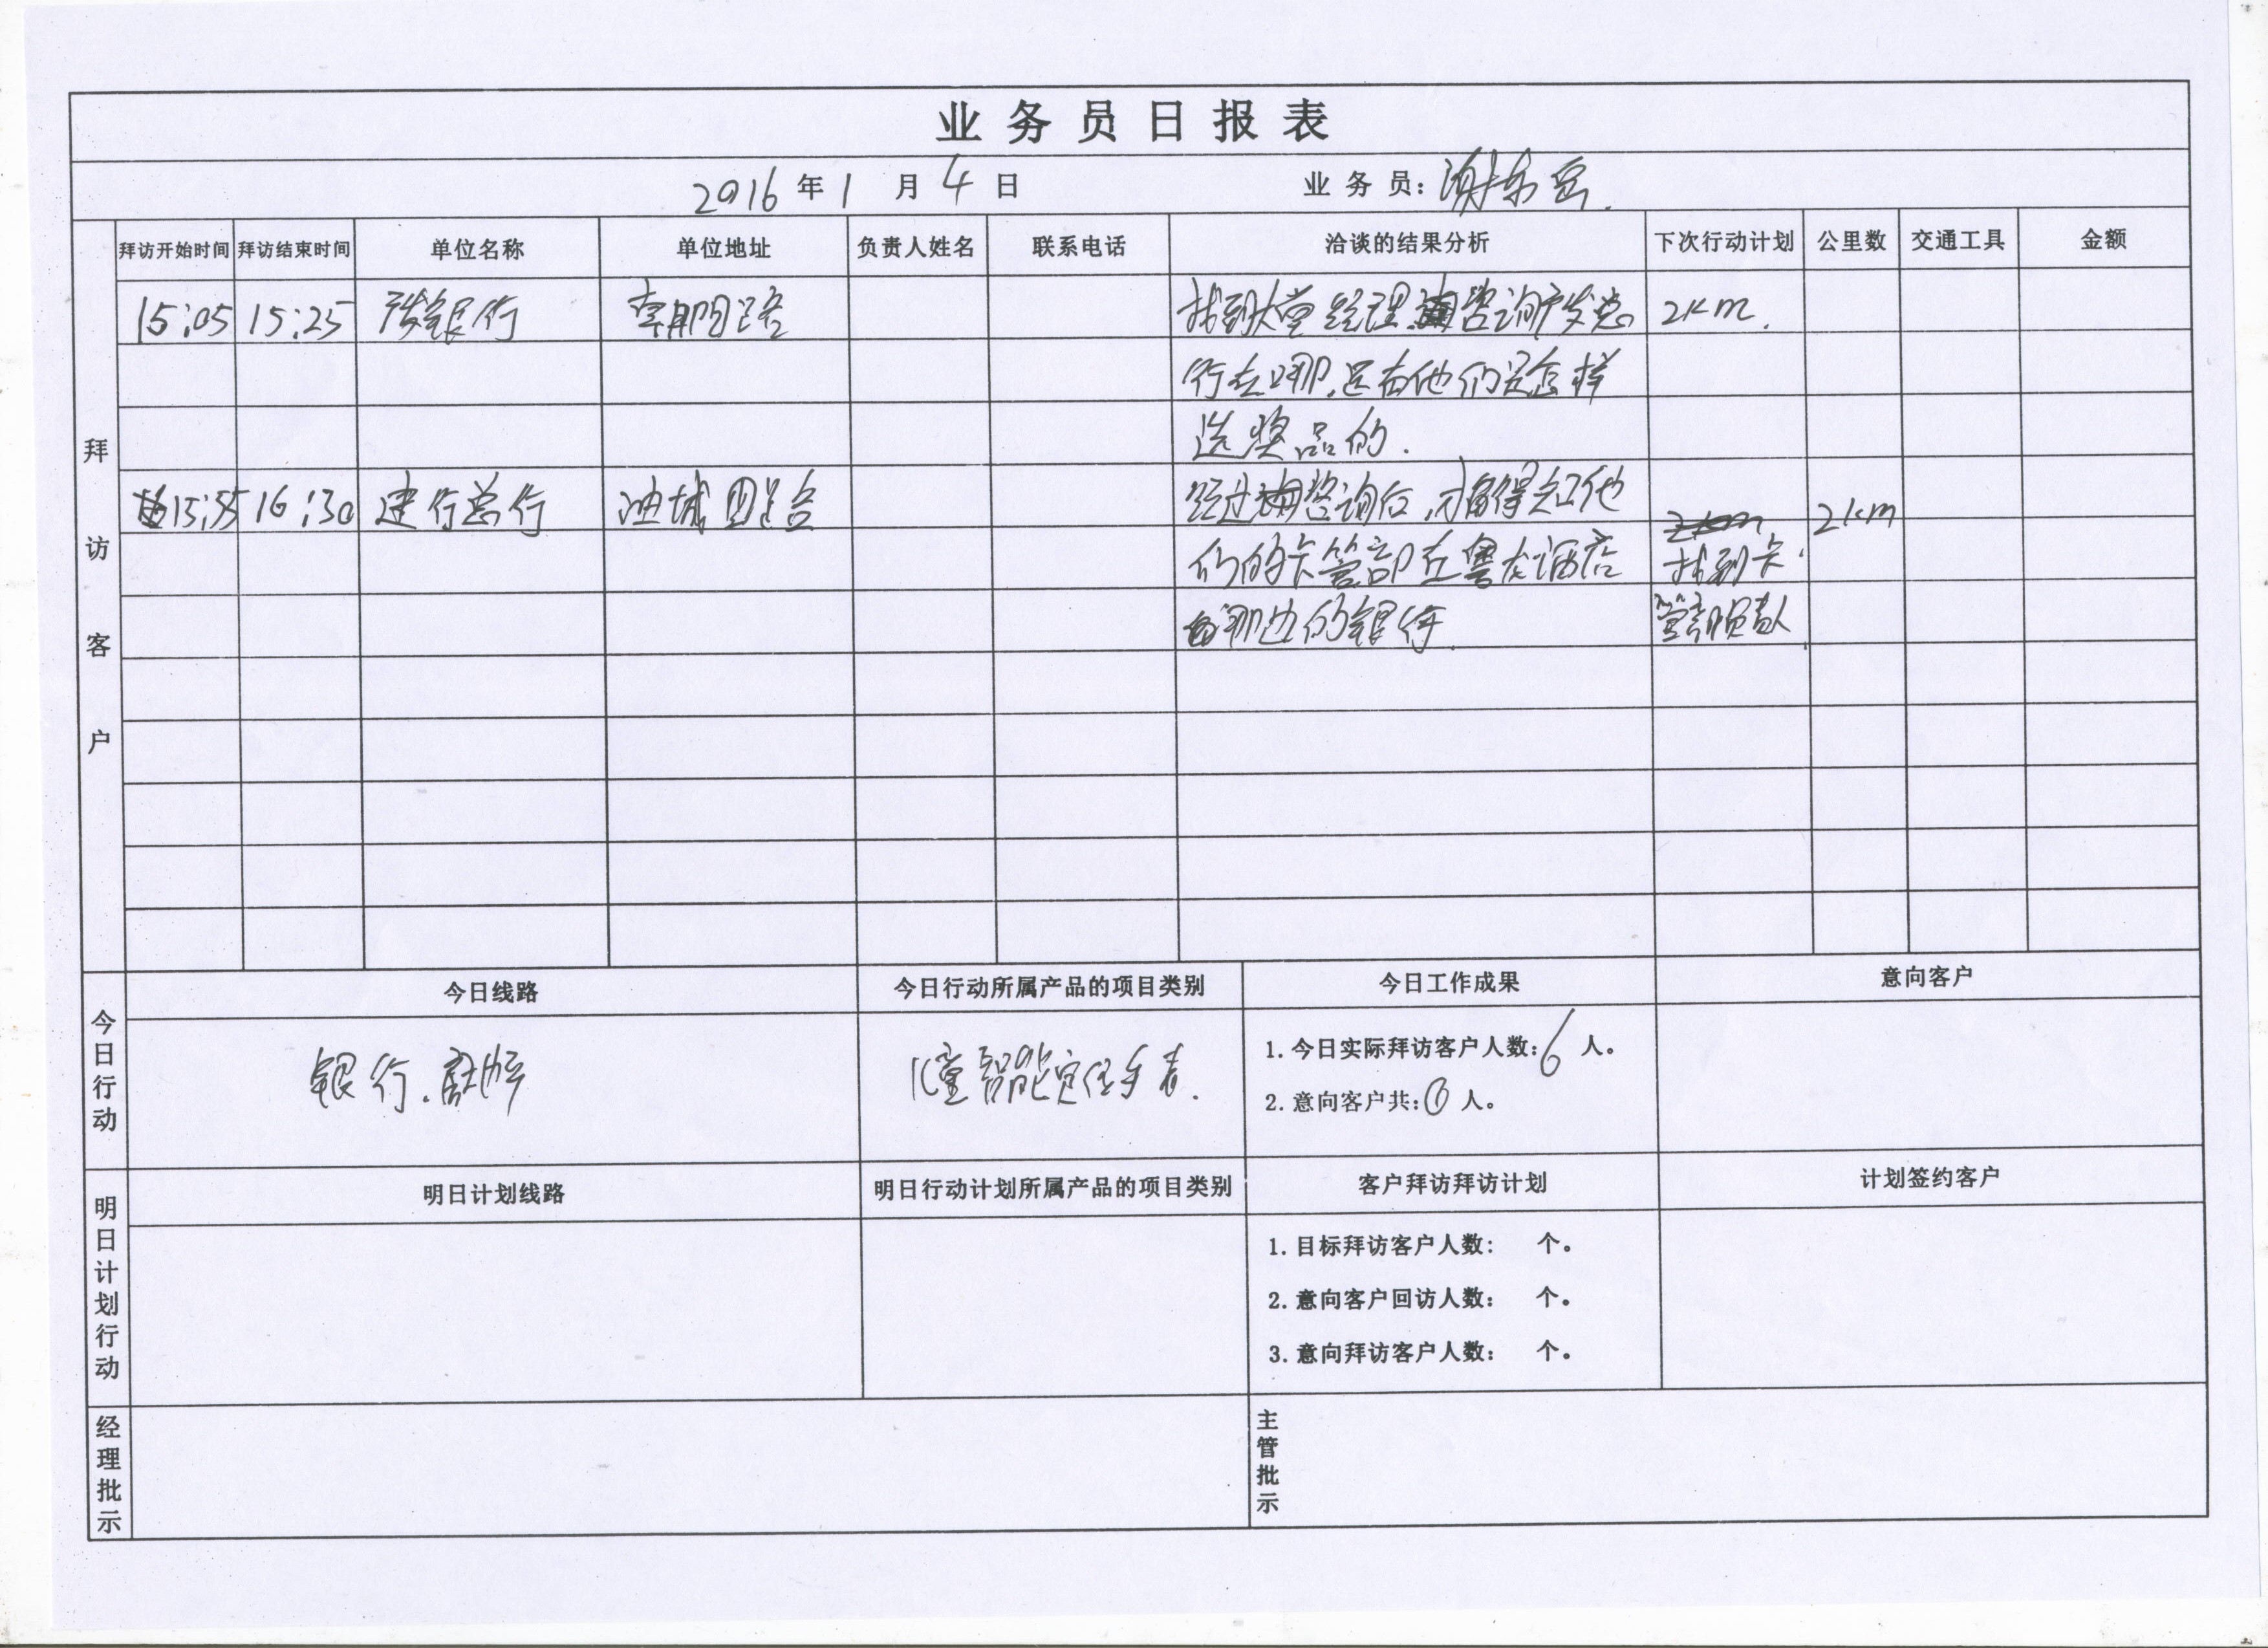 业务员日报表
2016年1月4日 业务员:谢
拜访客户
拜访开始时间 拜访结束时间 单位名称 单位地址 负责人姓名 联系电话 洽谈的结果分析 下次行动计划 公里数 交通工具 金额
15:05 15:25 银行 朝阳路 找到大堂经理 咨询广发总 2km.
行在哪,还有他们是怎样
选奖品的.
15:55 16:30 建行总行 油城四路 经过咨询后,才得知他 2km
们的卡管部在粤龙酒店 找到卡
那边的银行. 管部负责人
今日行动
今日线路 今日行动所属产品的项目类别 今日工作成果 意向客户
银行. 儿童智能定位手表. 1.今日实际拜访客户人数:6人。
2.意向客户共:0人。
明日计划行动
明日计划线路 明日行动计划所属产品的项目类别 客户拜访拜访计划 计划签约客户
1.目标拜访客户人数: 个。
2.意向客户回访人数: 个。
3.意向拜访客户人数: 个。
经理批示 主管批示